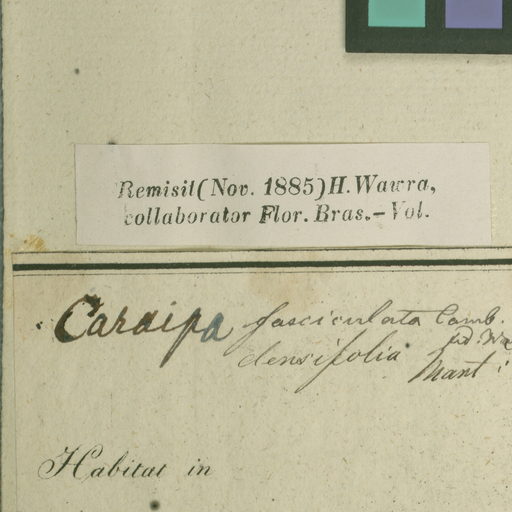 Remisit (Nov. 1885) H. Wawra,
collaborator Flor. Bras. – Vol.
Caraipa fasciculata Camb.
densifolia Mart
Habitat in